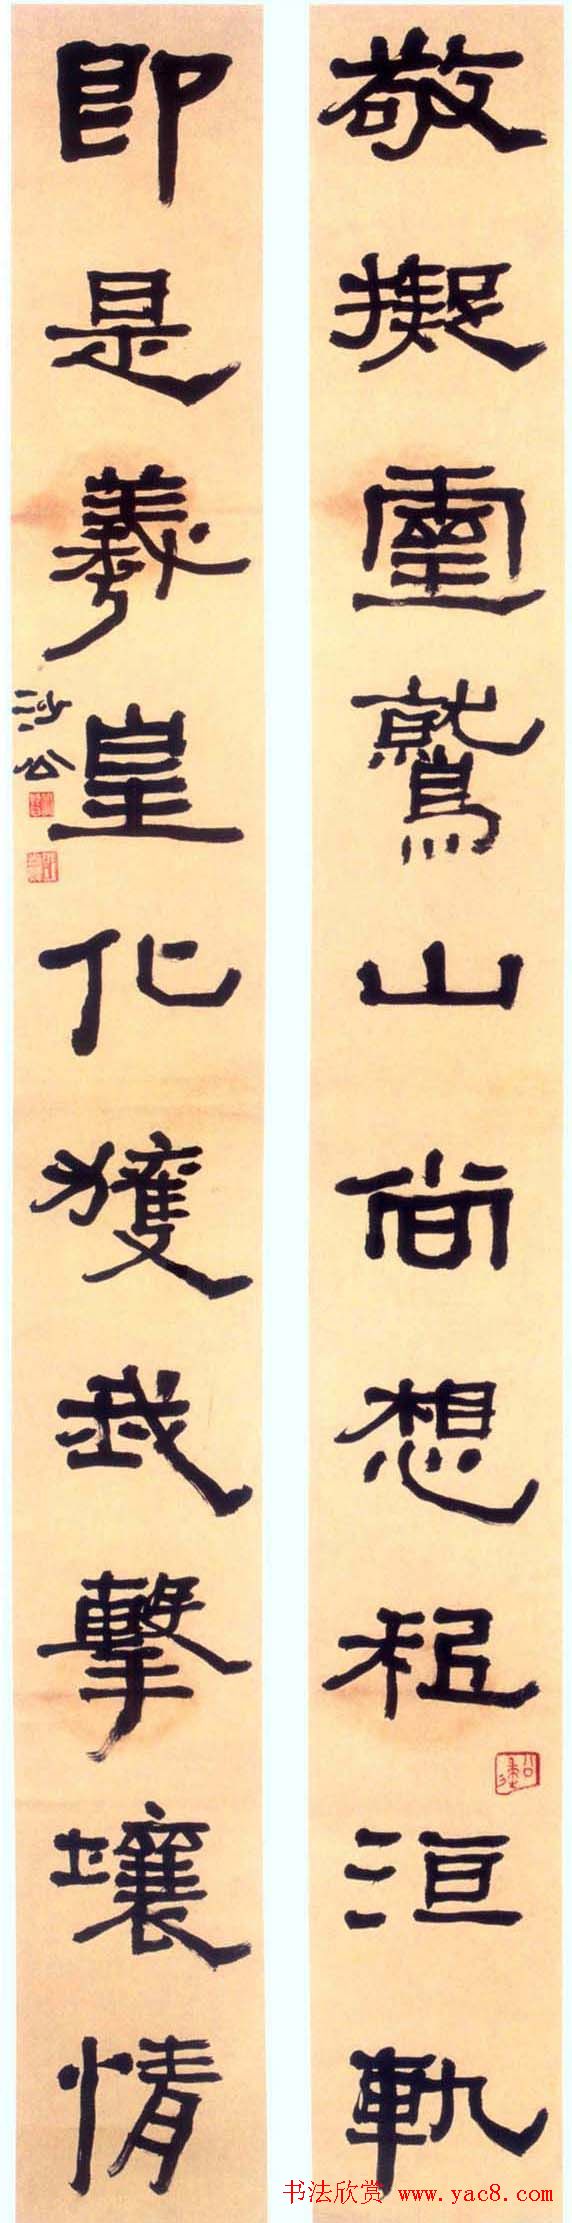 敬擬靈鷲山尚想祗洹軌
即是羲皇化獲我擊壤情
书法欣赏 www.yac8.com